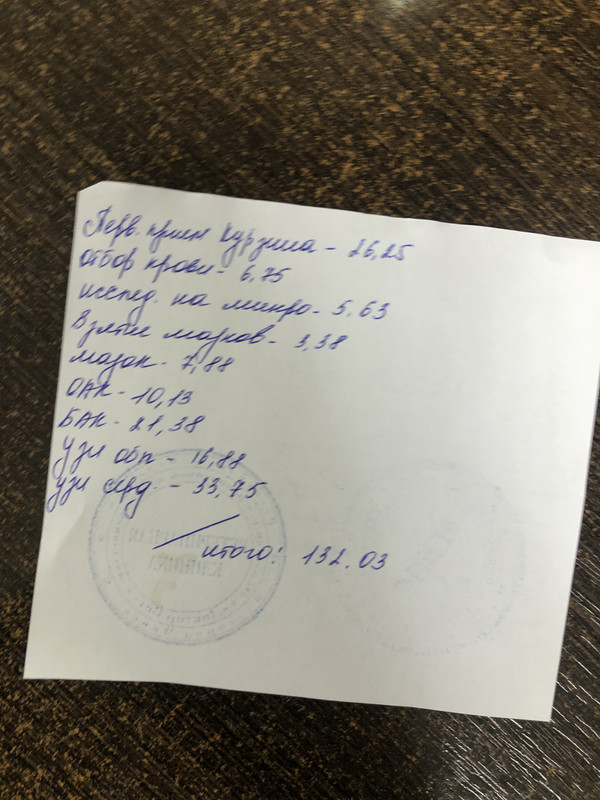 Перв. прием Курзина - 26,25
отбор крови - 6,75
исслед. на микро - 5.63
Взятие мазков - 3,38
мазок - 7,88
ОАК - 10,13
БАК - 21,38
УЗИ обп - 16,88
УЗИ серд - 33,75
итого: 132.03
КЛИНИКА